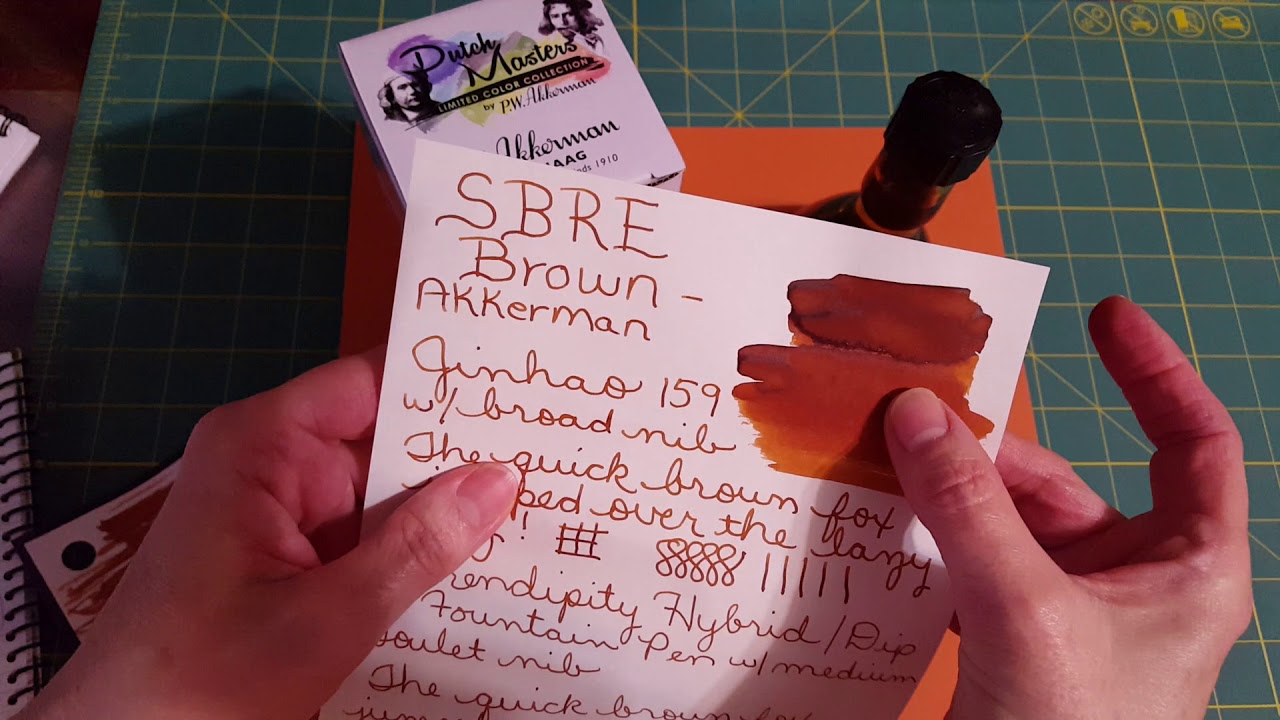 Dutch
Masters
LIMITED COLOR COLLECTION
by P.W. Akkerman
Akkerman
HAAG
1910
SBRE
Brown -
Akkerman
Jinhao 159
w/ broad nib
The quick brown fox
over the lazy
!
Hybrid/Dip
Fountain Pen w/ medium
nib
The quick brown fox